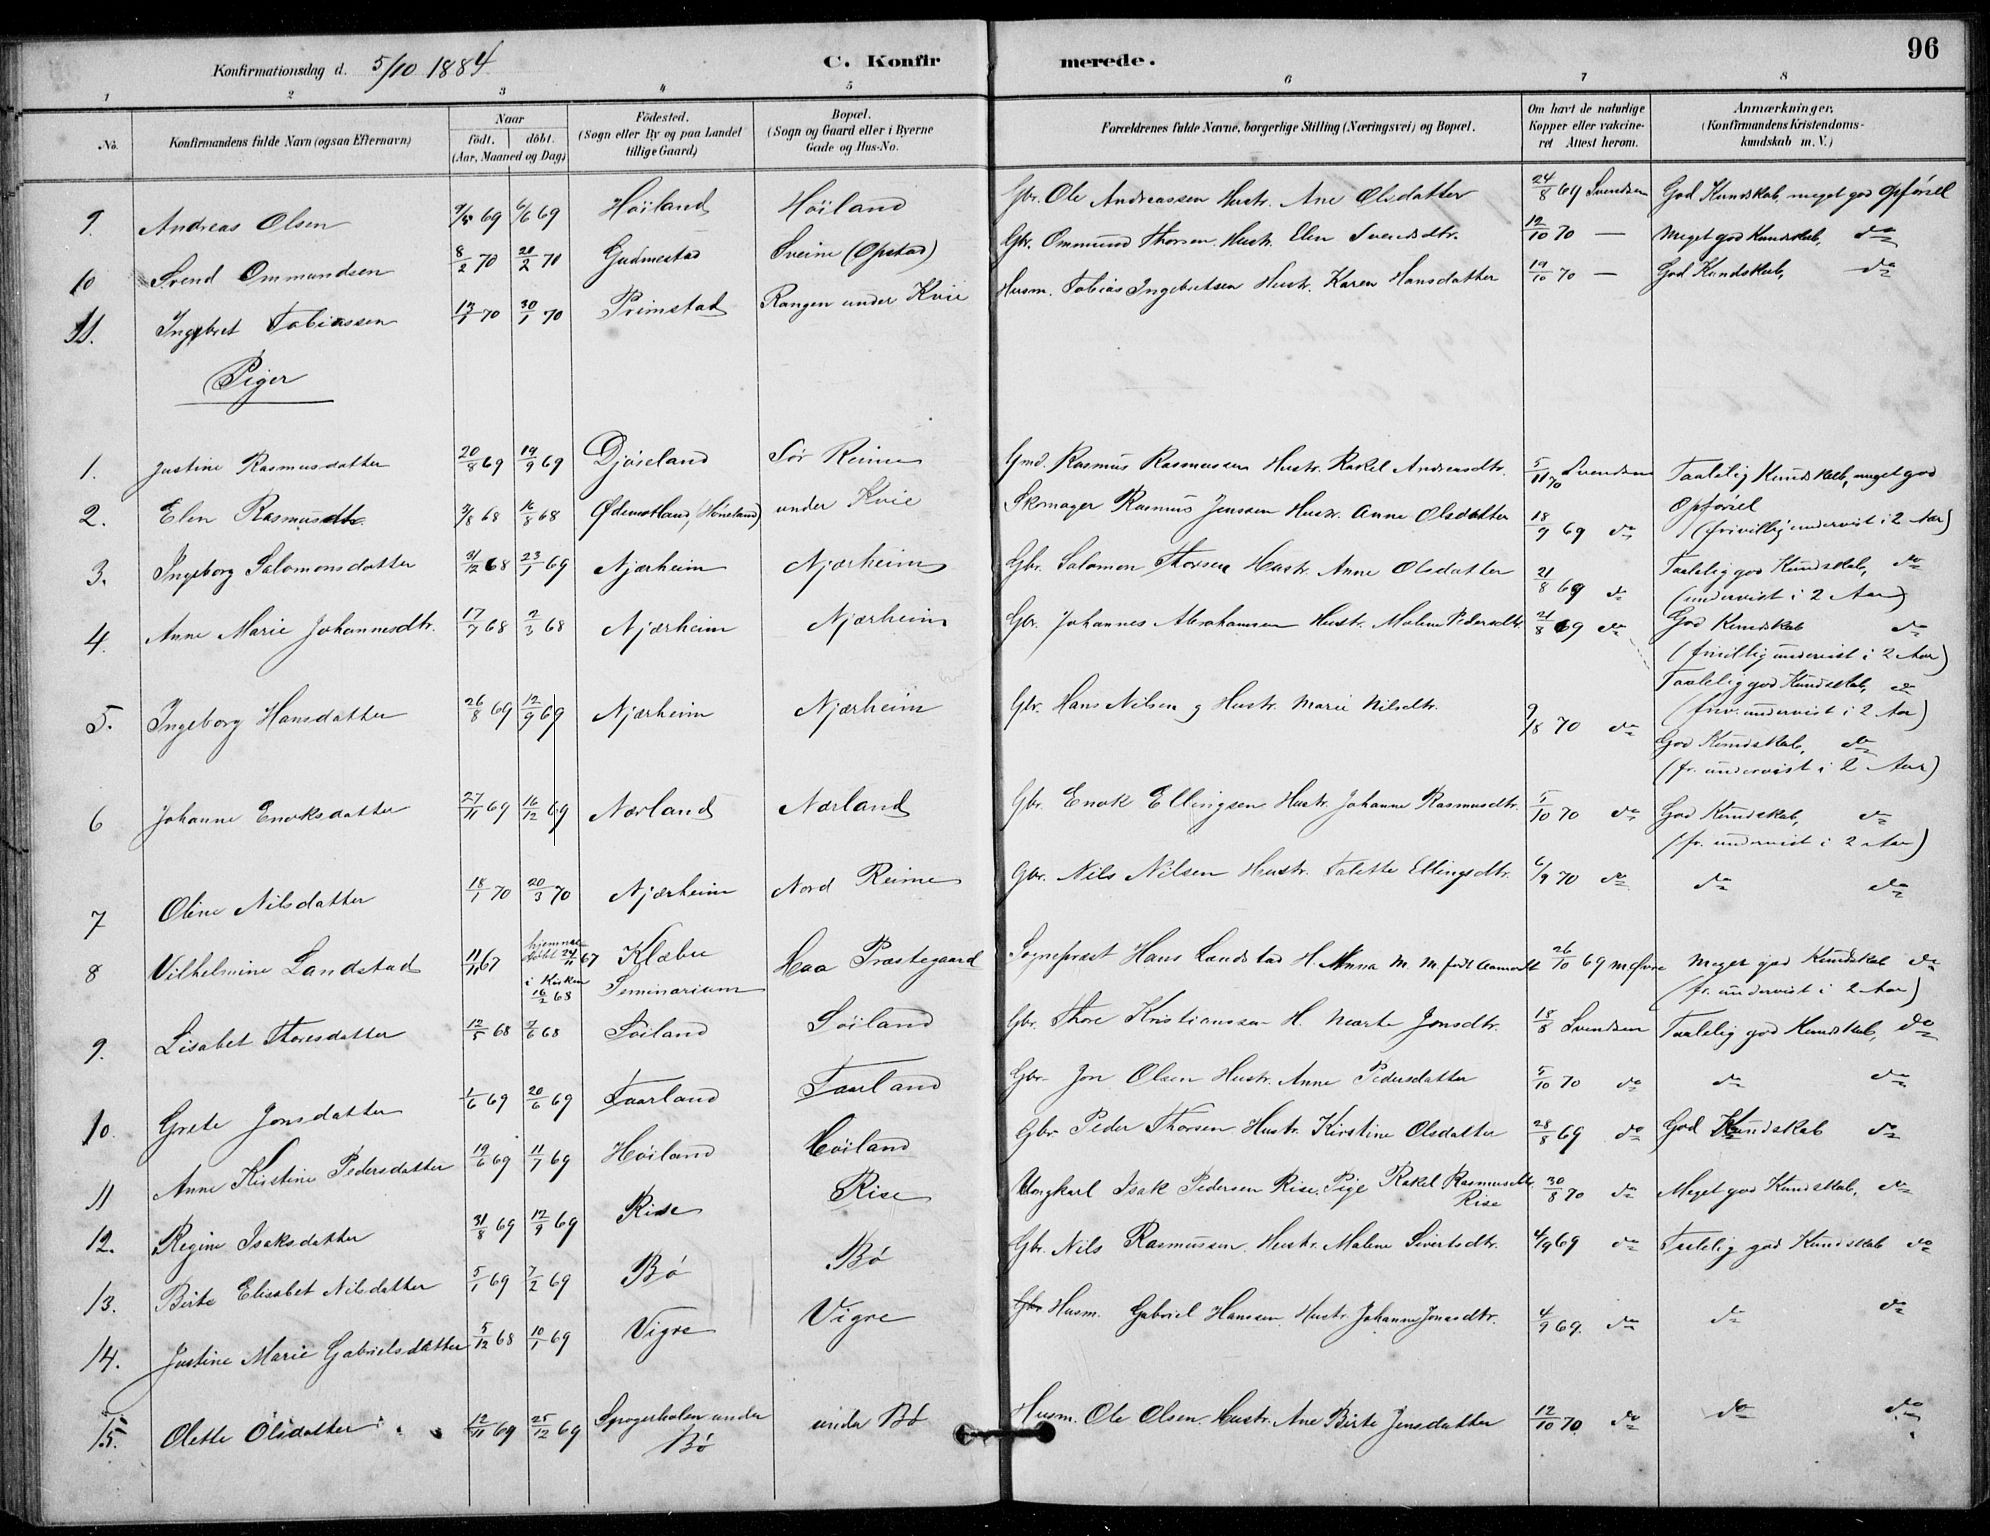 96
Konfirmationsdag d. 5/10 1884.
C. Konfirmerede.
1 2 3 4 5 6 7 8
No.
Konfirmandens fulde Navn (ogsaa Efternavn)
Naar
födt. döbt.
(Aar, Maaned og Dag)
Födested.
(Sogn eller By og paa Landet
tillige Gaard)
Bopæl.
(Sogn og Gaard eller i Byerne
Gade og Hus-No.
Forældrenes fulde Navne, borgerlige Stilling (Næringsvei) og Bopæl.
Om havt de naturlige
Kopper eller vakcine-
ret Attest herom.
Anmærkninger,
(Konfirmandens Kristendoms-
kundskab m. V.)
9. Andreas Olsen 9/5 69 6/6 69 Höiland Höiland Gbr. Ole Andreassen Hustr. Ane Olsdatter 24/8 69 Svendsen God Kundskab, meget god Opförsel
10 Svend Ommundsen 8/2 70 20/2 70 Gudmestad Sveine (Opstad) Gbr. Ommund Thorsen Hustr. Elen Svendsdtr. 12/10 70 — Meget god Kundskab, do
11. Ingebret Tobiassen 13/1 70 30/1 70 Primstad Rangen under Kvie Husm. Tobias Ingebretsen Hustr. Karen Hansdatter 19/10 70 — God Kundskab, do
Piger
1. Justine Rasmusdatter 20/8 69 19/9 69 Djöseland Sör Reime Gmd. Rasmus Rasmussen Hustr. Rakel Andreasdtr. 5/11 70 Svendsen Taalelig Kundskab, meget god
Opförsel
2. Elen Rasmusdtr. 3/8 68 16/8 68 Ødemotland, (Höieland) under Kvie Skomager Rasmus Jenssen Hustr. Anne Olsdatter 18/9 69 do (frivillig undervist i 2 Aar)
3. Ingeborg Salomonsdatter 31/12 68 23/1 69 Njærheim Njærheim Gbr. Salomon Thorsen Hustr. Anne Olsdatter 21/8 69 do Taalelig god Kundskab, do
(undervist i 2 Aar)
4. Anne Marie Johannesdtr. 17/7 68 2/3 68 Njærheim Njærheim Gbr. Johannes Abrahamsen Hustr. Malene Pedersdtr. 21/8 69 do God Kundskab do
(frivillig undervist i 2 Aar)
Taalelig god Kundskab, do
5. Ingeborg Hansdatter 26/8 69 12/9 69 Njærheim Njærheim Gbr. Hans Nilsen og Hustr. Marie Nilsdtr. 9/8 70 do (friv. undervist i 2 Aar)
God Kundskab, do
(fr. undervist i 2 Aar)
6 Johanne Enoksdatter 27/11 69 16/12 69 Nærland Nærland Gbr. Enok Ellingsen Hustr. Johanne Rasmusdtr. 5/10 70 do God Kundskab, do
(fr. undervist i 2 Aar)
7 Oline Nilsdatter 18/1 70 20/3 70 Njærheim Nord Reime Gbr. Nils Nilsen Hustr. Talette Ellingsdtr. 6/9 70 do do do
8 Vilhelmine Landstad 11/11 67 hjemme döbt 24/11 67 i Kirken 16/2 68 Klæbu Seminarium Haa Præstegaard Sognepræst Hans Landstad H. Anna M. M. född Aamodt 26/10 69 Meget god Kundskab do
(fr. undervist i 2 Aar)
9. Lisabet Thoresdatter 12/5 68 7/6 68 Söiland Söiland Gbr. Thore Kristianssen H. Marte Jonsdtr. 18/8 Svendsen Taalelig god Kundskab, do
10. Grete Jonsdatter 1/6 69 20/6 69 Taarland Taarland Gbr. Jon Olsen Hustr. Anne Pedersdatter 5/10 70 do do do
11 Anne Kirstine Pedersdatter 19/6 69 11/7 69 Höiland Höiland Gbr. Peder Thorsen Hustr. Kirstine Olsdatter 28/8 69 do God Kundskab do
12. Regine Isaksdatter 31/8 69 12/9 69 Rise Rise Ungkarl Isak Pedersen Rise. Pige Rakel Rasmusdtr. Rise 30/8 70 do Meget god Kundskab, do
13. Birte Elisabet Nilsdatter 5/1 69 7/2 69 Bö Bö Gbr. Nils Rasmussen. Hustr. Malene Sivertsdtr. 4/9 69 do Taalelig god Kundskab do
14. Justine Marie Gabrielsdatter 5/12 68 10/1 69 Vigre Vigre Gbr Husm. Gabriel Hansen. Hustr. Johanne Jonasdtr. 4/9 69. do do do
15. Olette Olsdatter 12/11 69 25/12 69 under Bö under Bö Husm. Ole Olsen. Hustr. Ane Birte Jensdatter 12/10 70 do do do